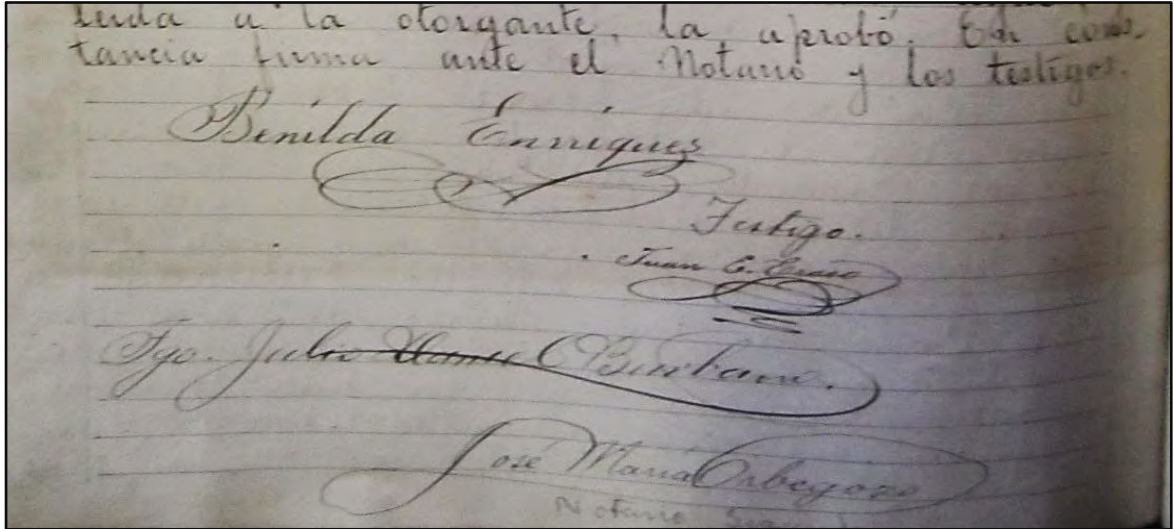 leida a la otorgante, la aprobó. En cons-
tancia firma ante el Notario y los testigos.
Benilda Enriques
Testigo.
Juan C. Eraso
Tgo. Julio Burbano.
José María Orbegozo
Notario